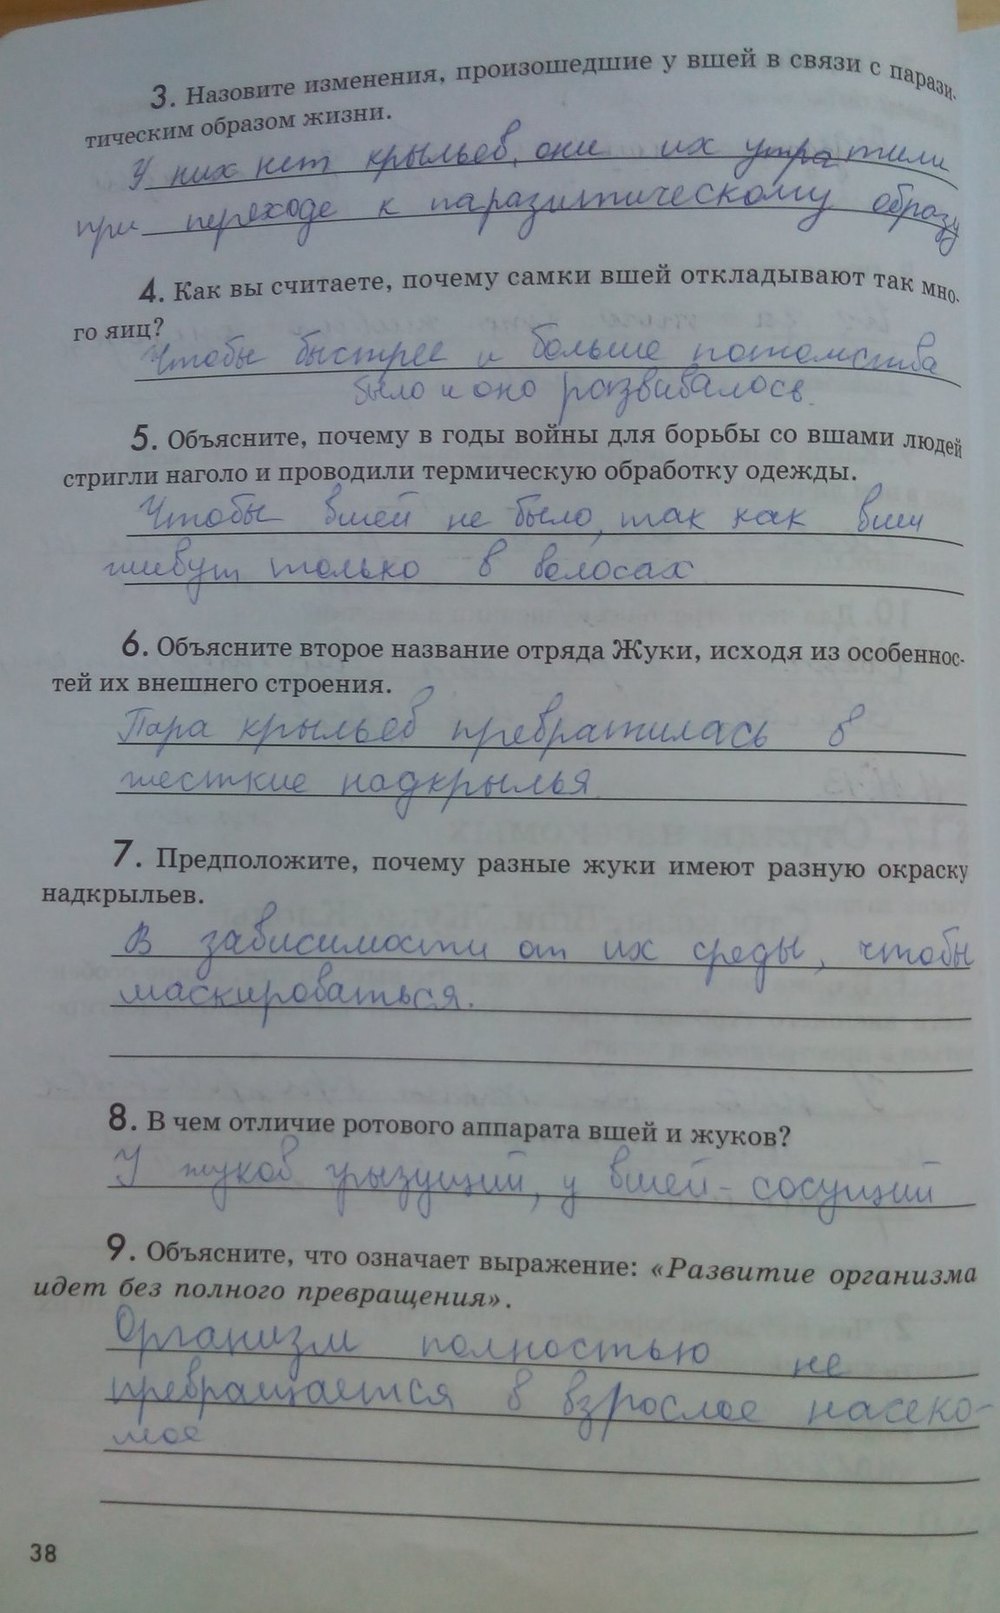 3. Назовите изменения, произошедшие у вшей в связи с парази-
тическим образом жизни.
У них нет крыльев, они их утратили
при переходе к паразитическому образу
4. Как вы считаете, почему самки вшей откладывают так мно-
го яиц?
Чтобы быстрее и больше потомства
было и оно развивалось.
5. Объясните, почему в годы войны для борьбы со вшами людей
стригли наголо и проводили термическую обработку одежды.
Чтобы вшей не было, так как вши
живут только в волосах
6. Объясните второе название отряда Жуки, исходя из особеннос-
тей их внешнего строения.
Пара крыльев превратилась в
жесткие надкрылья.
7. Предположите, почему разные жуки имеют разную окраску
надкрыльев.
В зависимости от их среды, чтобы
маскироваться.
8. В чем отличие ротового аппарата вшей и жуков?
У жуков грызущий, у вшей - сосущий
9. Объясните, что означает выражение: «Развитие организма
идет без полного превращения».
Организм полностью не
превращается в взрослое насеко-
мое
38